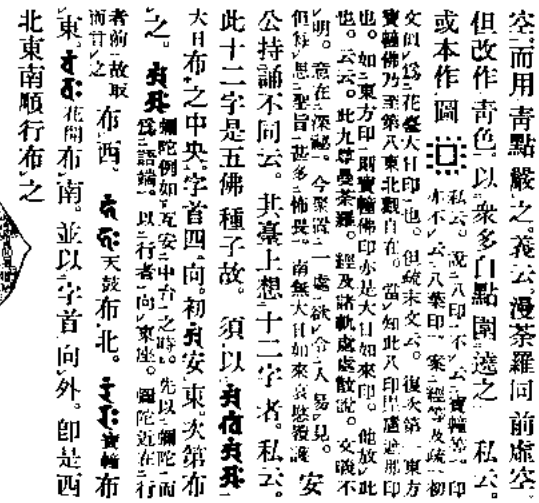 空。而用青點嚴之。義云。漫荼羅同前虛空。
但改作青色。以衆多白點圍遶之 私云。
或本作圖 私云。說八印不云寶幢等。印
亦不云八葉印。案經等及疏初
文似爲花臺大日印也。但疏末文云。復次第一東方
寶幢佛乃至第八東北觀自在。當知此八印
也。如東方印。則寶幢佛印亦是大日如來印。他放此
也。云云。此九尊曼荼羅。經及諸軌處處散說。文義不
明。意在深祕。今聚置一處。欲令人易見。
但恐聖旨。甚多怖畏。南無大日如來哀愍護 安
公持誦不同云。其臺上想十二字者。私云。
此十二字是五佛種子故。須以
大日布之中央。字首四向。初 安東。次第布
之。 彌陀例如瓦安中台之時。先以彌陀而
爲語端。以行者向東座。彌陀近在行
者前。故取
而言之 布西。 天鼓布北。 寶幢布
東。 花開布南。並以字首向外。卽是西
北東南順行布之